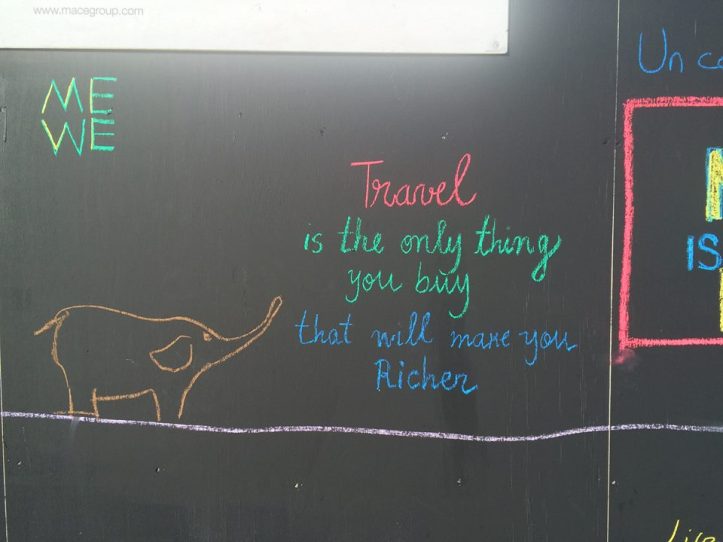 www.macegroup.com
ME
WE
Travel
is the only thing
you buy
that will make you
Richer
Un
IS